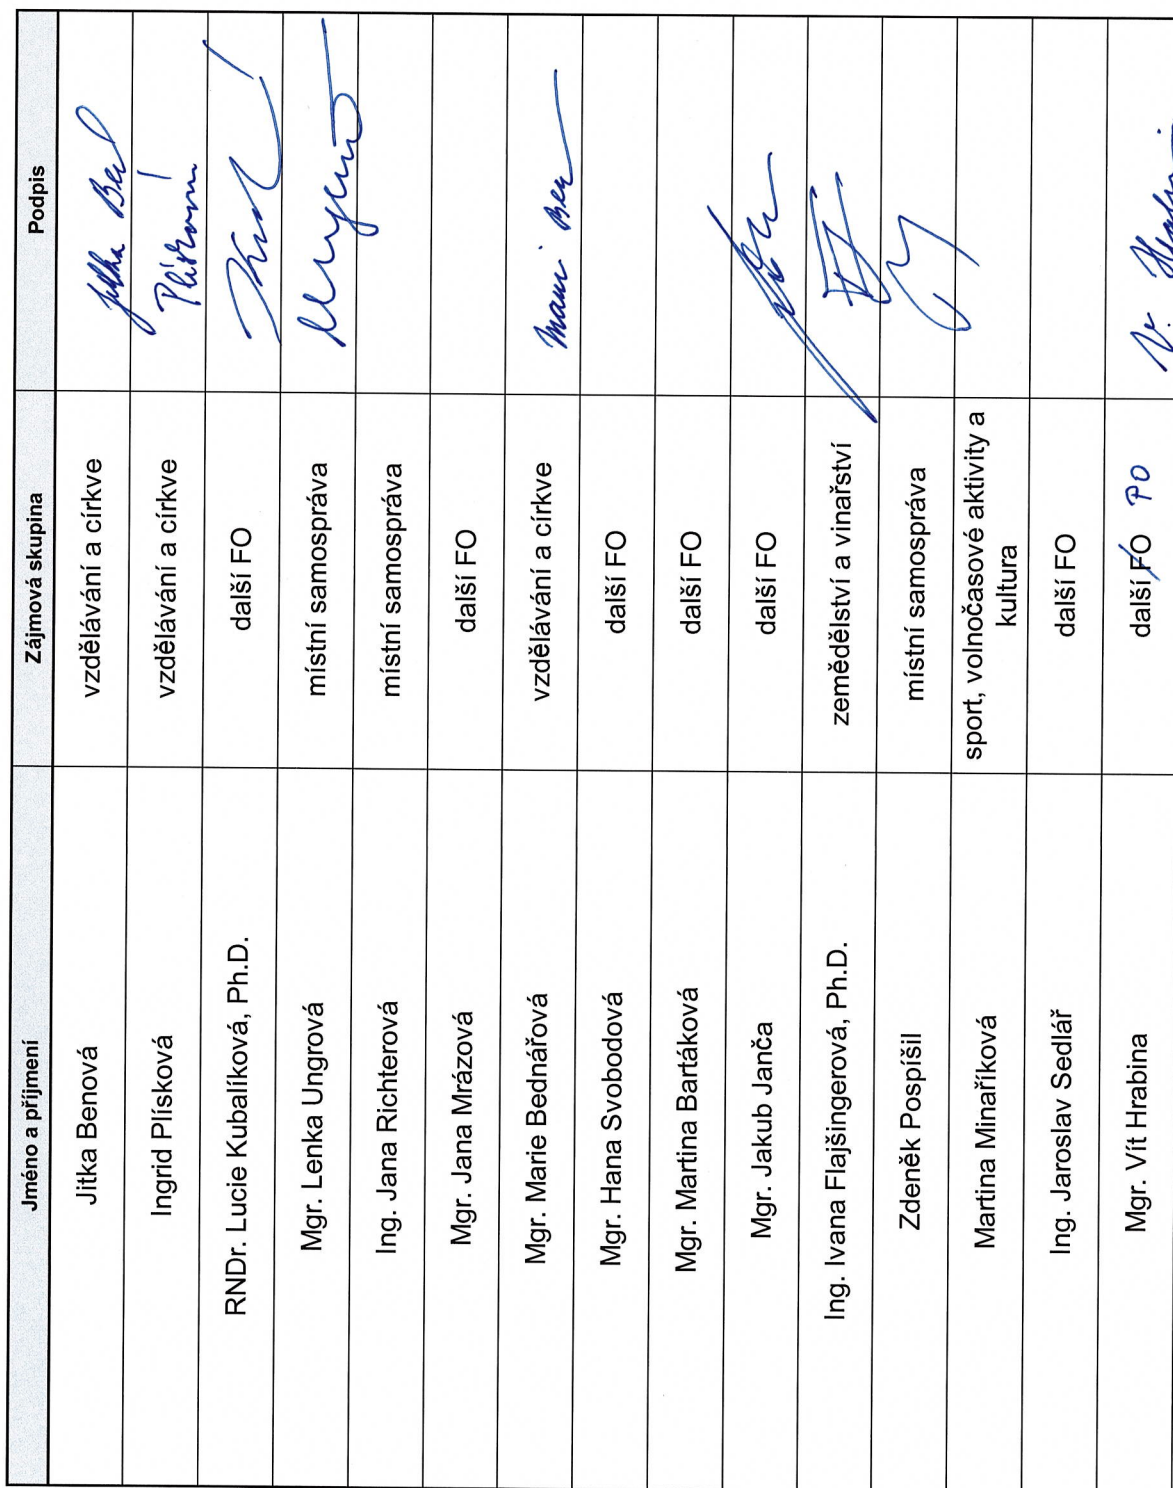 Jméno a příjmení Zájmová skupina Podpis
Jitka Benová vzdělávání a církve Jitka Ben
Ingrid Plísková vzdělávání a církve Plísková
RNDr. Lucie Kubalíková, Ph.D. další FO
Mgr. Lenka Ungrová místní samospráva
Ing. Jana Richterová místní samospráva
Mgr. Jana Mrázová další FO
Mgr. Marie Bednářová vzdělávání a církve
Mgr. Hana Svobodová další FO
Mgr. Martina Bartáková další FO
Mgr. Jakub Janča další FO
Ing. Ivana Flajšingerová, Ph.D. zemědělství a vinařství
Zdeněk Pospíšil místní samospráva
Martina Minaříková sport, volnočasové aktivity a
kultura
Ing. Jaroslav Sedlář další FO
Mgr. Vít Hrabina další FO PO